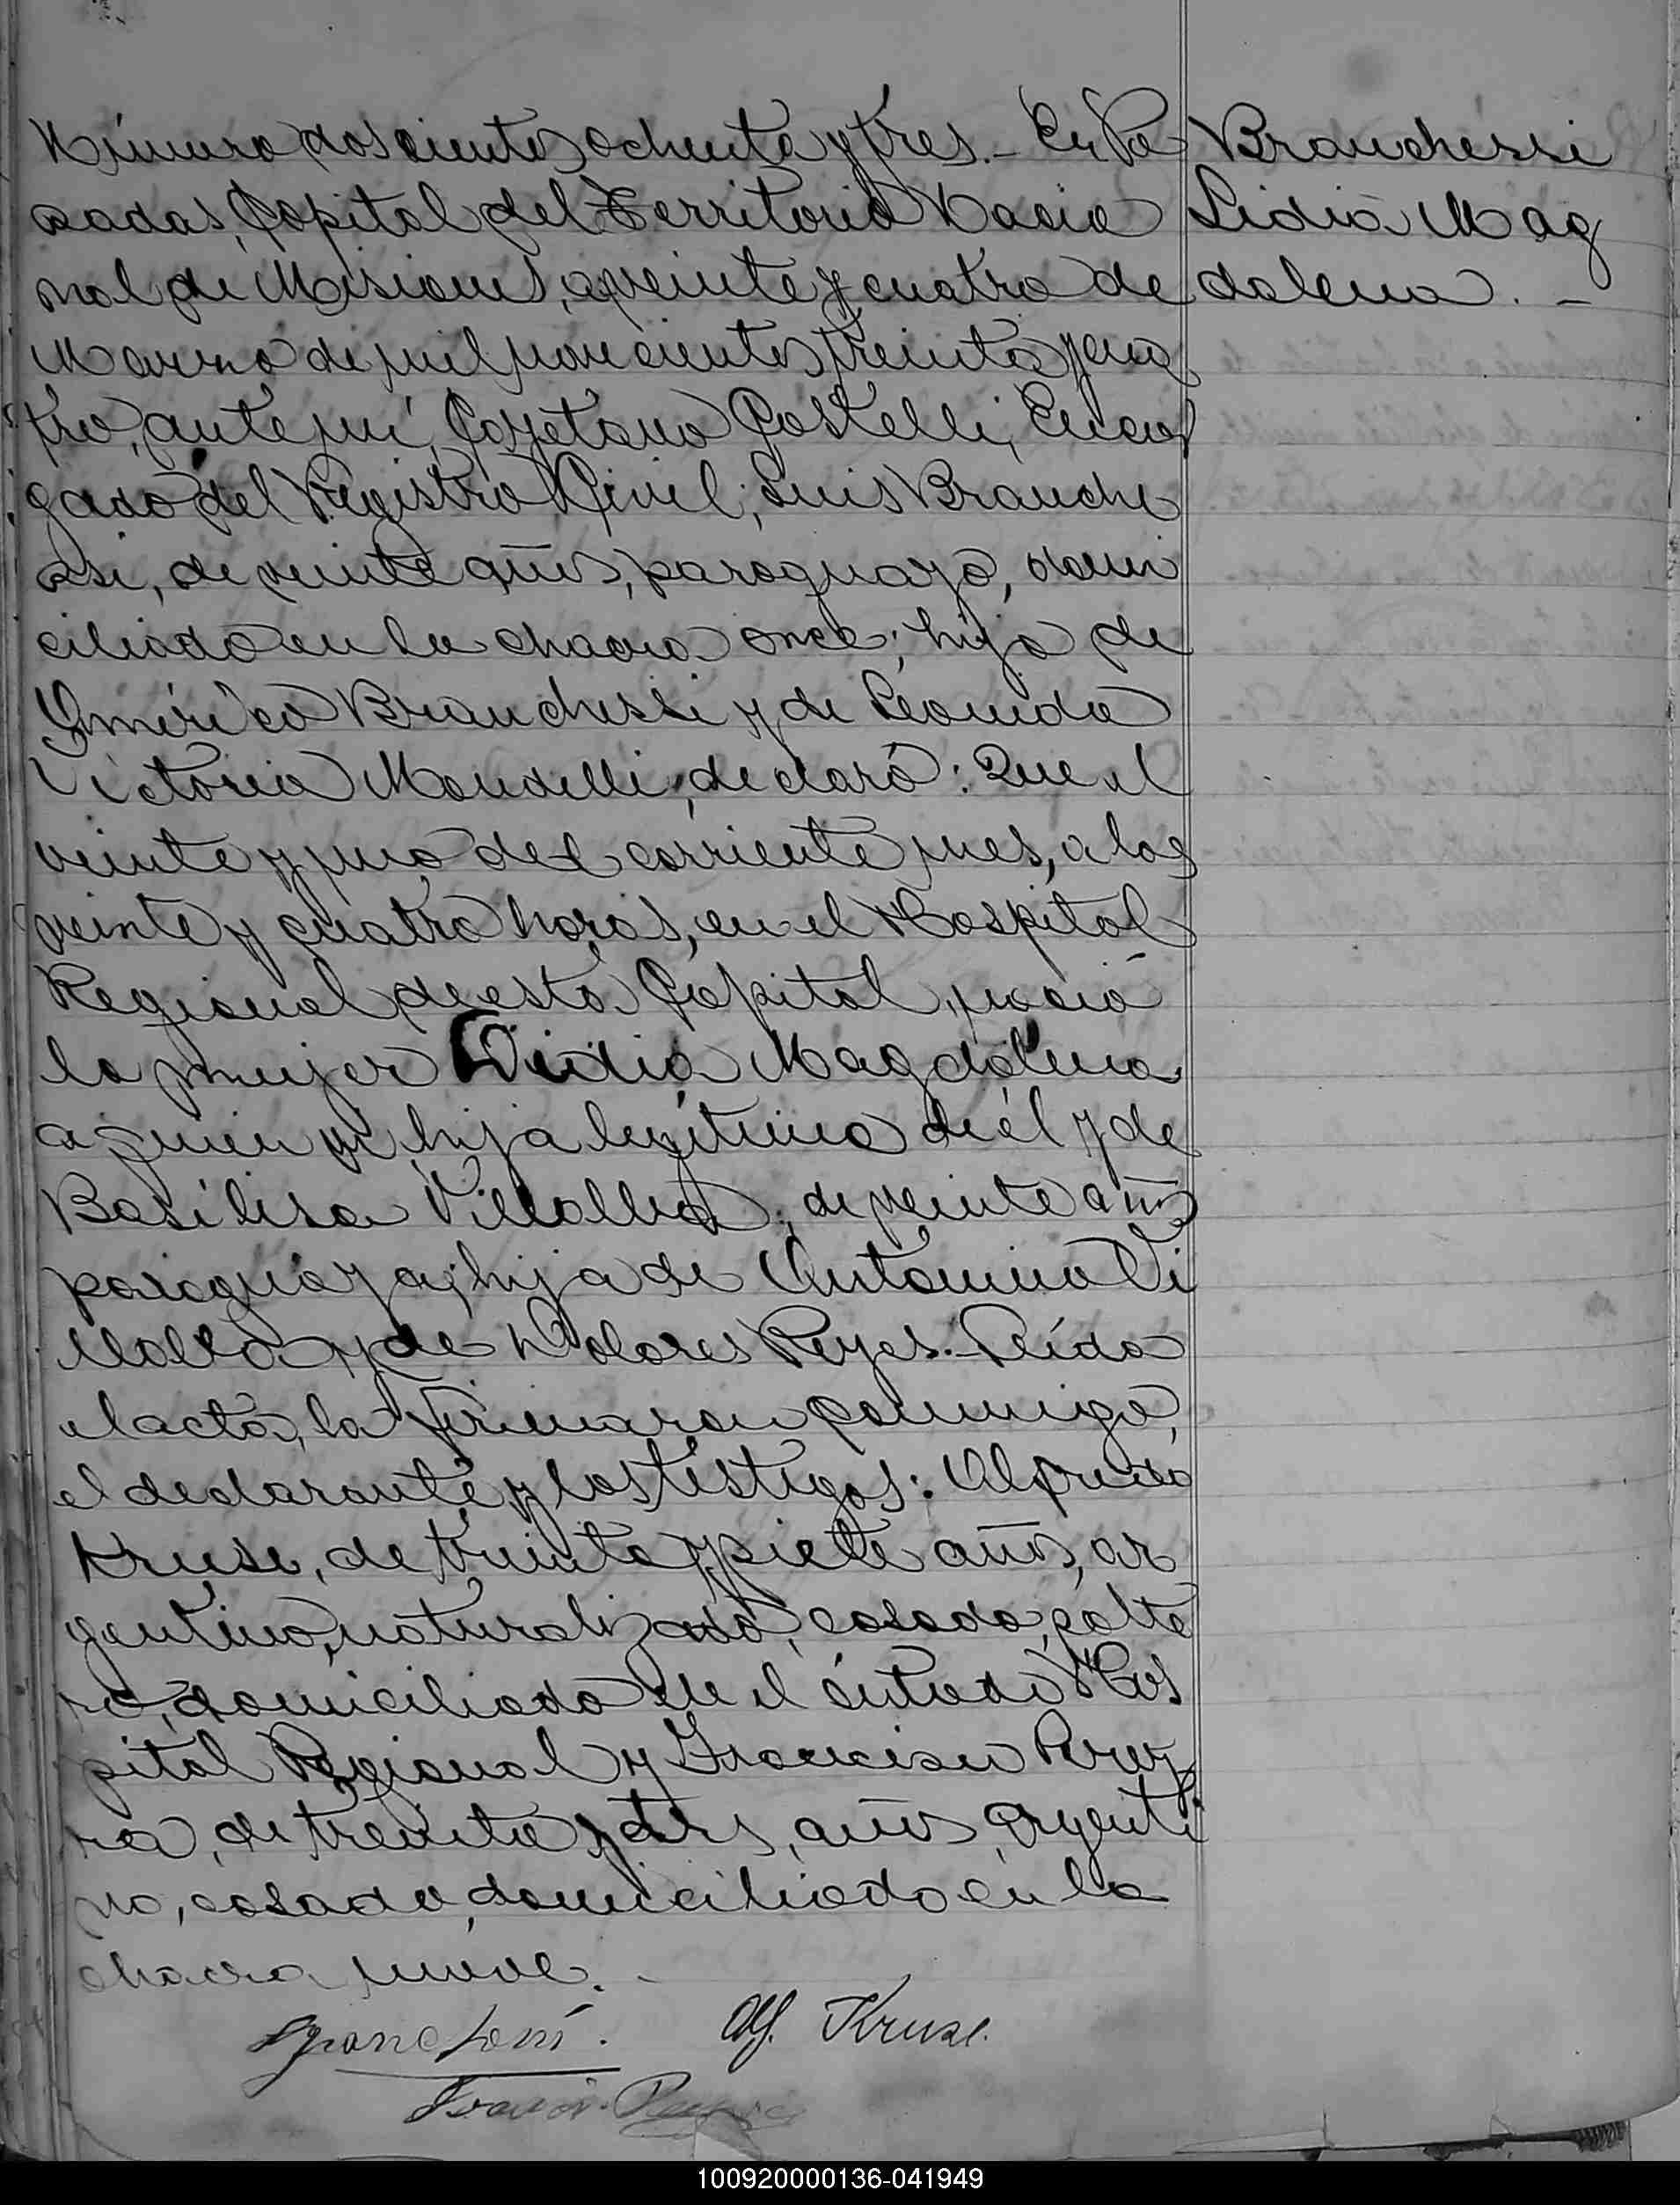 Número doscientos ochenta y tres.- En Po
sadas, Capital del Territorio Nacio
nal de Misiones, a veinte y cuatro de
Marzo de mil novecientos treinta y cua
tro, ante mí, Cayetano Castelli, Encar
gado del Registro Civil; Luis Branche
ssi, de veinte años, paraguayo, domi
ciliado en la chacra once; hijo de
Américo Branchessi y de Leonida
Victoria Mondelli, declaró: Que el
veinte y uno del corriente mes, a las
veinte y cuatro horas, en el Hospital
Regional de esta Capital, nació
la mujer Lidia Magdalena
a quien vi hija legítima de él y de
Basilisa Villalba, de veinte años
paraguaya, hija de Antonino Vi
llalba y de Dolores Reyes.- Leída
el acta, la firmaron conmigo,
el declarante y los testigos: Alfredo
Kruse, de treinta y siete años, ar
gentino, naturalizado, casado, solte
ro, domiciliado en el citado Hos
pital Regional y Francisco
de treinta y tres, años, argenti
no, casado, domiciliado en la
chacra nueve.-
Alf. Kruse.
Branchessi
Lidia Mag
dalena.-
100920000136-041949